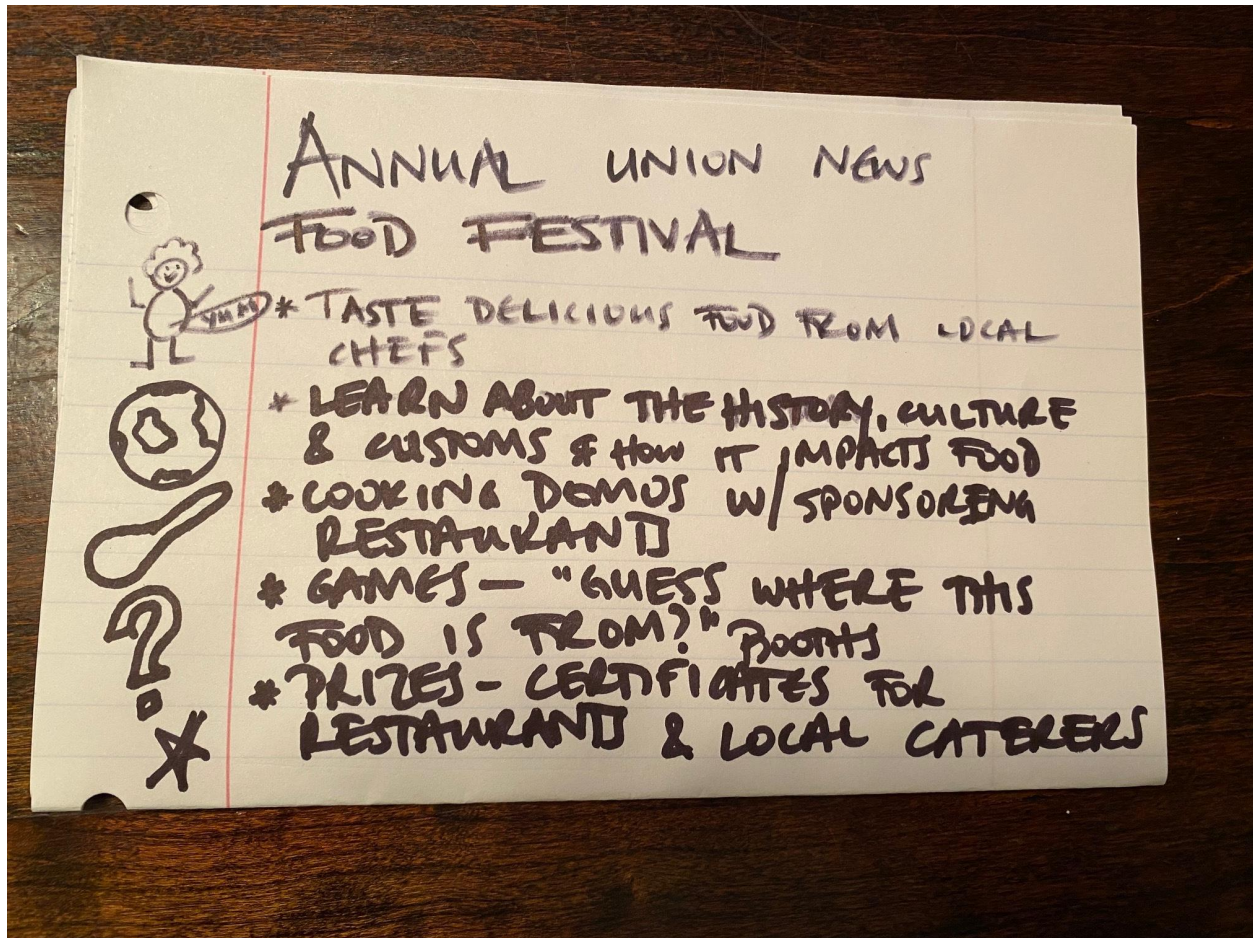 ANNUAL UNION NEWS
FOOD FESTIVAL
YUM
* TASTE DELICIOUS FOOD FROM LOCAL
CHEFS
* LEARN ABOUT THE HISTORY, CULTURE
& CUSTOMS & HOW IT IMPACTS FOOD
* COOKING DEMOS W/ SPONSORING
RESTAURANTS
* GAMES - "GUESS WHERE THIS
FOOD IS FROM?" BOOTHS
* PRIZES - CERTIFICATES FOR
RESTAURANTS & LOCAL CATERERS